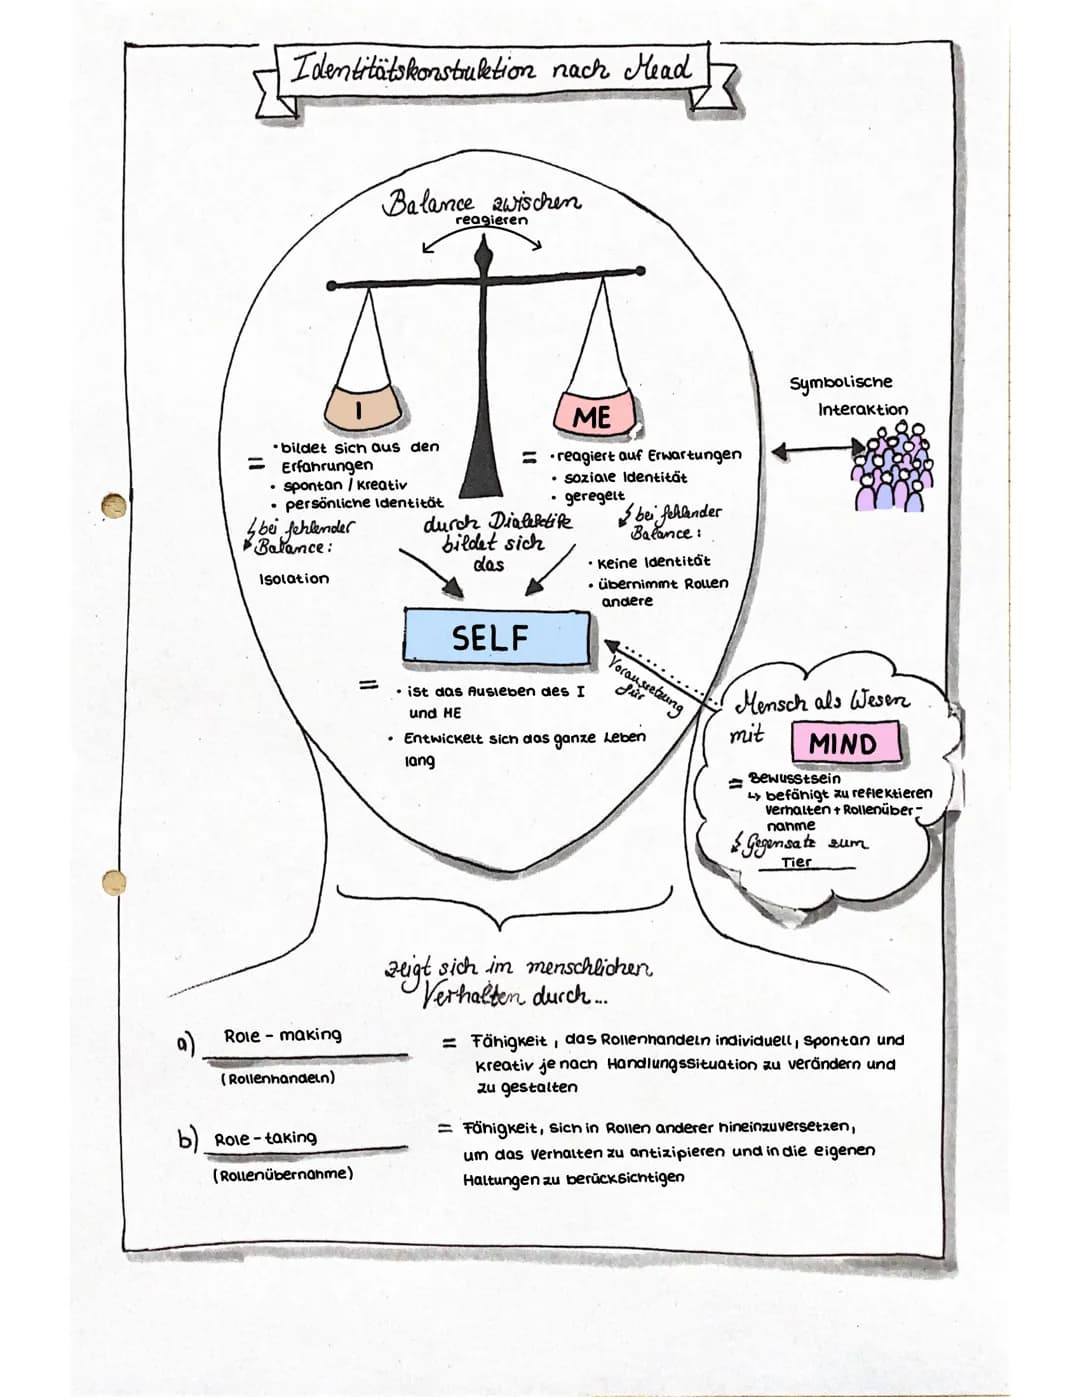 Identitätskonstruktion nach Mead
Balance zwischen
reagieren
I
ME
= • bildet sich aus den
Erfahrungen
• spontan / kreativ
• persönliche Identität
↯ bei fehlender
Balance:
Isolation
= • reagiert auf Erwartungen
• soziale Identität
• geregelt
↯ bei fehlender
Balance:
• keine Identität
• übernimmt Rollen
andere
durch Dialektik
bildet sich
das
SELF
= • ist das Ausleben des I
und ME
• Entwickelt sich das ganze Leben
lang
Symbolische
Interaktion
Voraussetzung
für
Mensch als Wesen
mit MIND
= Bewusstsein
↳ befähigt zu reflektieren
Verhalten + Rollenüber-
nahme
↯ Gegensatz zum
Tier
zeigt sich im menschlichen
Verhalten durch...
a) Role - making
(Rollenhandeln)
= Fähigkeit, das Rollenhandeln individuell, spontan und
kreativ je nach Handlungssituation zu verändern und
zu gestalten
b) Role - taking
(Rollenübernahme)
= Fähigkeit, sich in Rollen anderer hineinzuversetzen,
um das Verhalten zu antizipieren und in die eigenen
Haltungen zu berücksichtigen